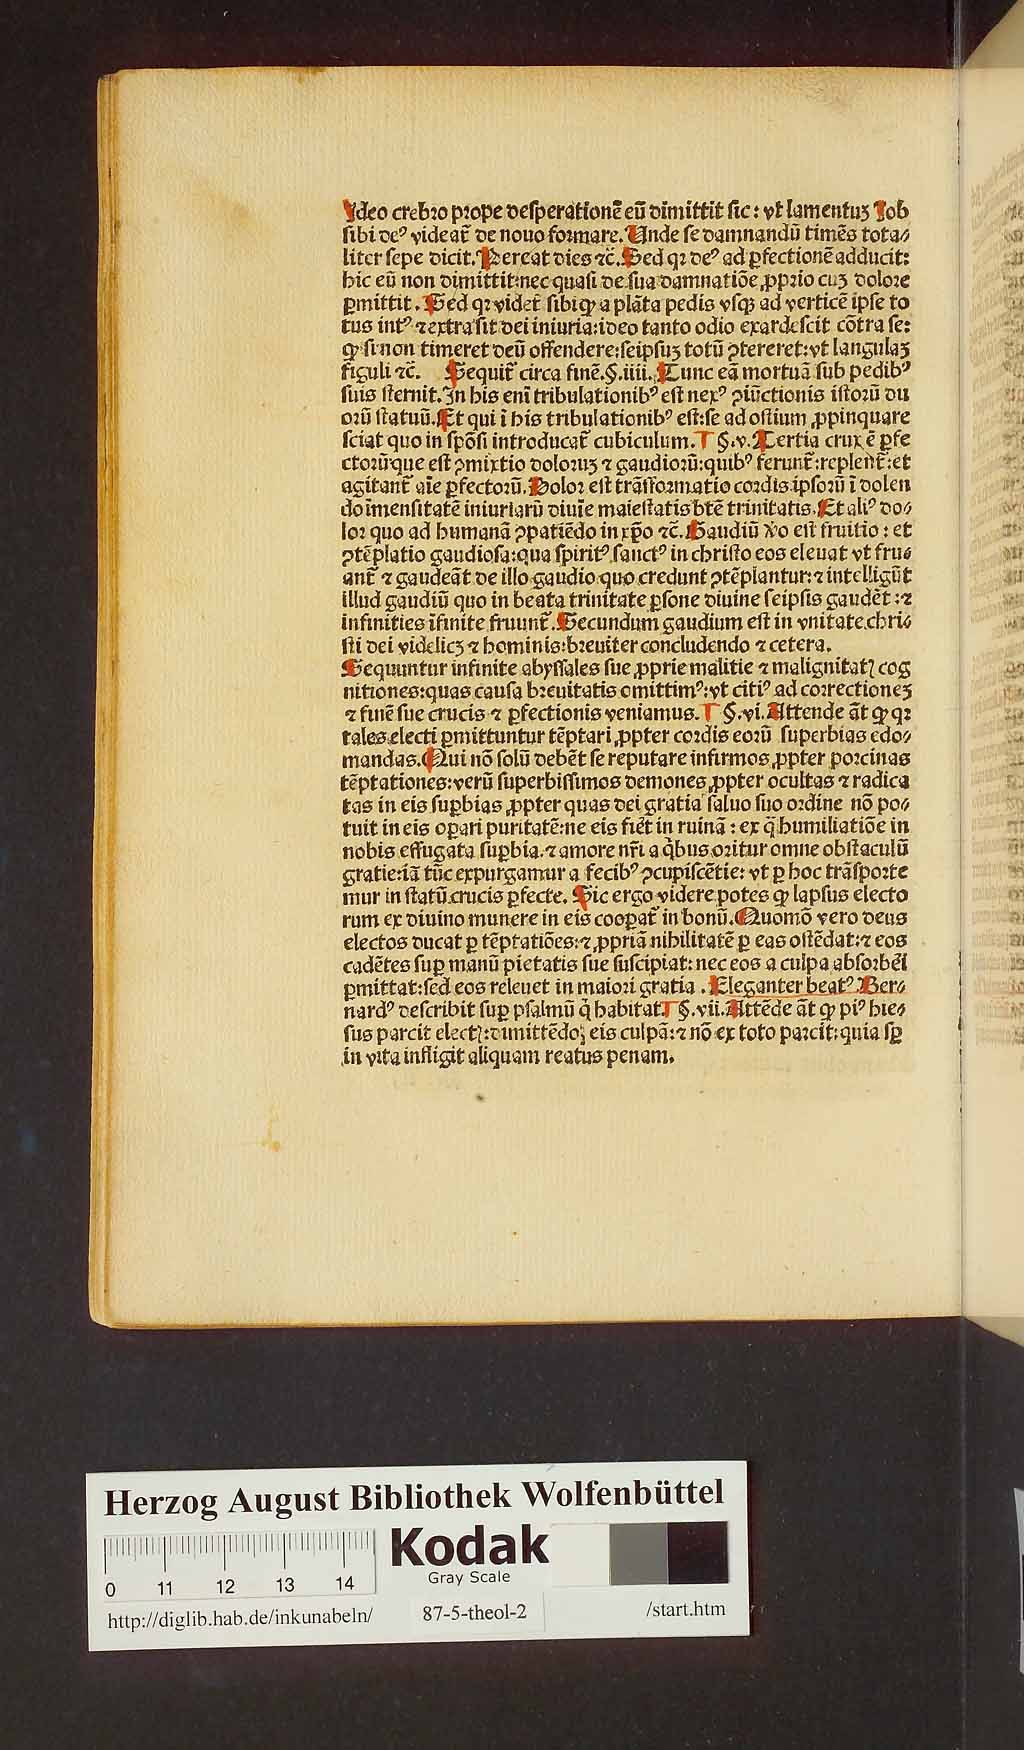 Ideo crebro prope desperationē eū dimittit sic: vt lamentuꝫ Iob
sibi deꝰ videat᷑ de nouo formare. Unde se damnandū timēs tota⸗
liter sepe dicit. Pereat dies ⁊c̄. Sed qꝛ deꝰ ad ꝑfectionē adducit:
hic eū non dimittit: nec quasi de sua damnatiōe ꝓprio cuꝫ dolore
ꝑmittit. Sed qꝛ videt᷑ sibi ꝙ a plāta pedis vsqꝫ ad verticē ipse to
tus intꝰ ⁊ extra sit dei iniuria: ideo tanto odio exardescit cōtra se:
ꝙ si non timeret deū offendere: seipsuꝫ totū ꝯtereret: vt langulaꝫ
figuli ⁊c̄. Sequit᷑ circa finē. §. iiii. Tunc eā mortuā sub pedibꝰ
suis sternit. In his enī tribulationibꝰ est nexꝰ ꝯiūctionis istorū du
orū statuū. Et qui ī his tribulationibꝰ est: se ad ostium ꝓpinquare
sciat quo in spōsi introducat᷑ cubiculum. §. v. Tertia crux ē ꝑfe
ctorū que est ꝯmixtio doloruꝫ ⁊ gaudiorū: quibꝰ ferunt᷑: replent᷑: et
agitant᷑ aīe ꝑfectorū. Dolor est trāsformatio cordis ipsorū ī dolen
do īmensitatē iniuriarū diuīe maiestatis btē trinitatis. Et aliꝰ do⸗
lor quo ad humanā ꝯpatiēdo in xp̄o ⁊c̄. Gaudiū v̉o est fruitio: et
ꝯtēplatio gaudiosa: qua spiritꝰ sanctꝰ in christo eos eleuat vt fru⸗
ant᷑ ⁊ gaudeāt de illo gaudio quo credunt ꝯtēplantur: ⁊ intelligūt
illud gaudiū quo in beata trinitate ꝑsone diuine seipsis gaudēt: ⁊
infinities īfinite fruunt᷑. Secundum gaudium est in vnitate chri⸗
sti dei videlicꝫ ⁊ hominis: breuiter concludendo ⁊ cetera.
Sequuntur infinite abyssales sue ꝓprie malitie ⁊ malignitatꝭ cog
nitiones: quas causa breuitatis omittimꝰ: vt citiꝰ ad correctioneꝫ
⁊ finē sue crucis ⁊ ꝑfectionis veniamus. §. vi. Attende āt ꝙ qꝛ
tales electi ꝑmittuntur tēptari ꝓpter cordis eorū superbias edo⸗
mandas. Qui nō solū debēt se reputare infirmos ꝓpter porcinas
tēptationes: verū superbissimos demones ꝓpter ocultas ⁊ radica
tas in eis suꝑbias ꝓpter quas dei gratia saluo suo ordine nō po⸗
tuit in eis oꝑari puritatē: ne eis fiet in ruinā: ex q̄ humiliatiōe in
nobis effugata suꝑbia. ⁊ amore nr̄i a qͥbus oritur omne obstaculū
gratie: iā tūc expurgamur a fecibꝰ ꝯcupiscētie: vt ꝑ hoc trāsporte
mur in statū crucis ꝑfecte. Sic ergo videre potes ꝙ lapsus electo
rum ex diuino munere in eis cooꝑat᷑ in bonū. Quomō vero deus
electos ducat ꝑ tēptatiōes: ⁊ ꝓpriā nihilitatē ꝑ eas ostēdat: ⁊ eos
cadētes suꝑ manū pietatis sue suscipiat: nec eos a culpa absorberi
ꝑmittat: sed eos releuet in maiori gratia. Eleganter beatꝰ Ber⸗
nardꝰ describit suꝑ psalmū qͥ habitat. §. vii. Attēde āt ꝙ piꝰ hie⸗
sus parcit electꝭ: dimittēdo eis culpā: ⁊ nō ex toto parcit: quia sꝑ
in vita infligit aliquam reatus penam.
Herzog August Bibliothek Wolfenbüttel
Kodak
Gray Scale
0 11 12 13 14
http://diglib.hab.de/inkunabeln/ 87-5-theol-2 /start.htm